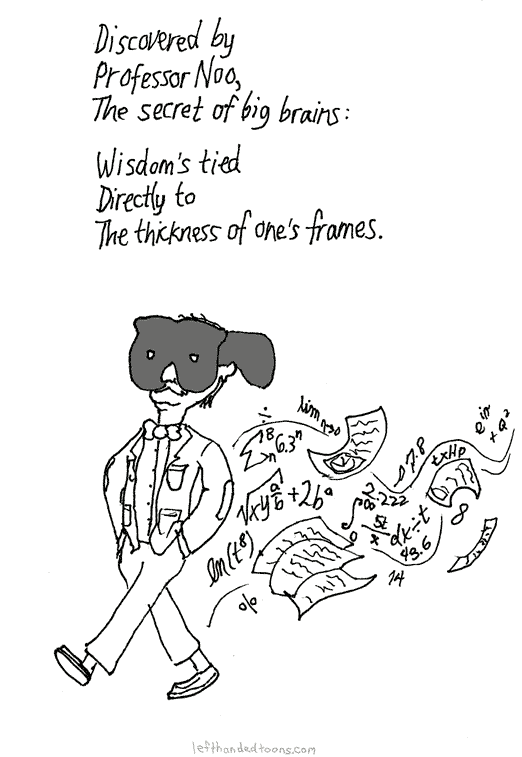 Discovered by
Professor Noo,
The secret of big brains:
Wisdom's tied
Directly to
The thickness of one's frames.
÷
lim n→∞
18
>n
6.3ⁿ
√xy a/b + 2bᵃ
ln(t⁸)
%
2.222
5t/x dx ÷ t
43.6
14
7.8
txHp
8
+ a²
lefthandedtoons.com